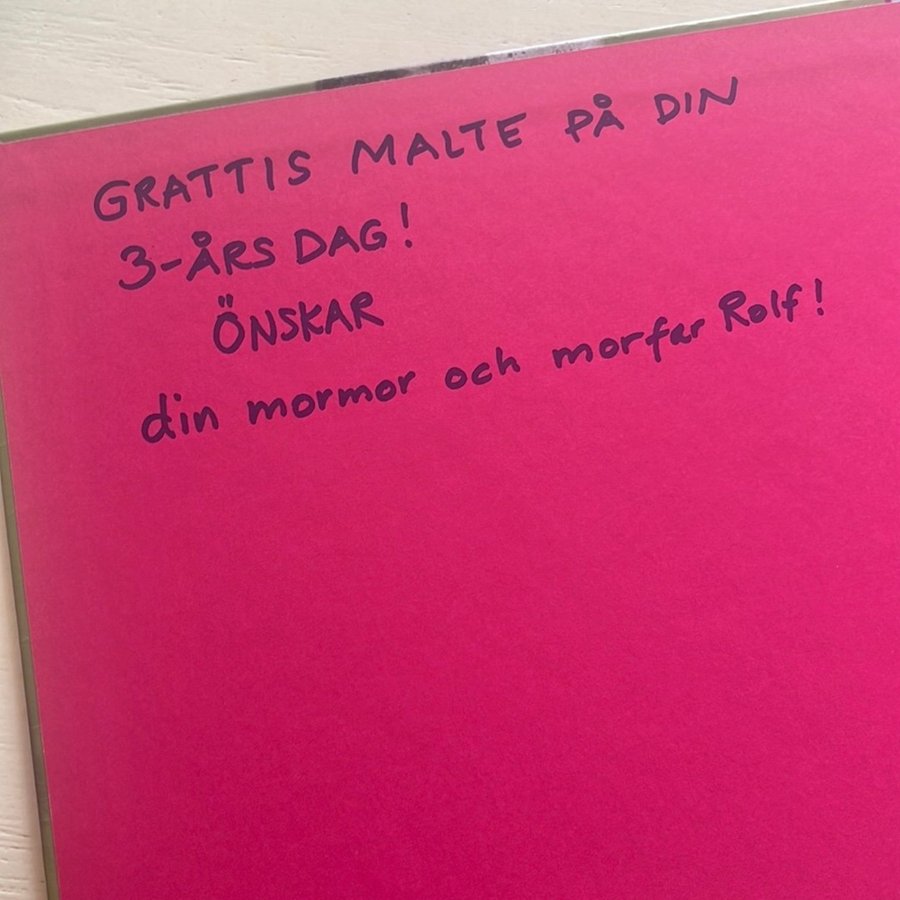 GRATTIS MALTE PÅ DIN
3-ÅRS DAG!
ÖNSKAR
din mormor och morfar Rolf!